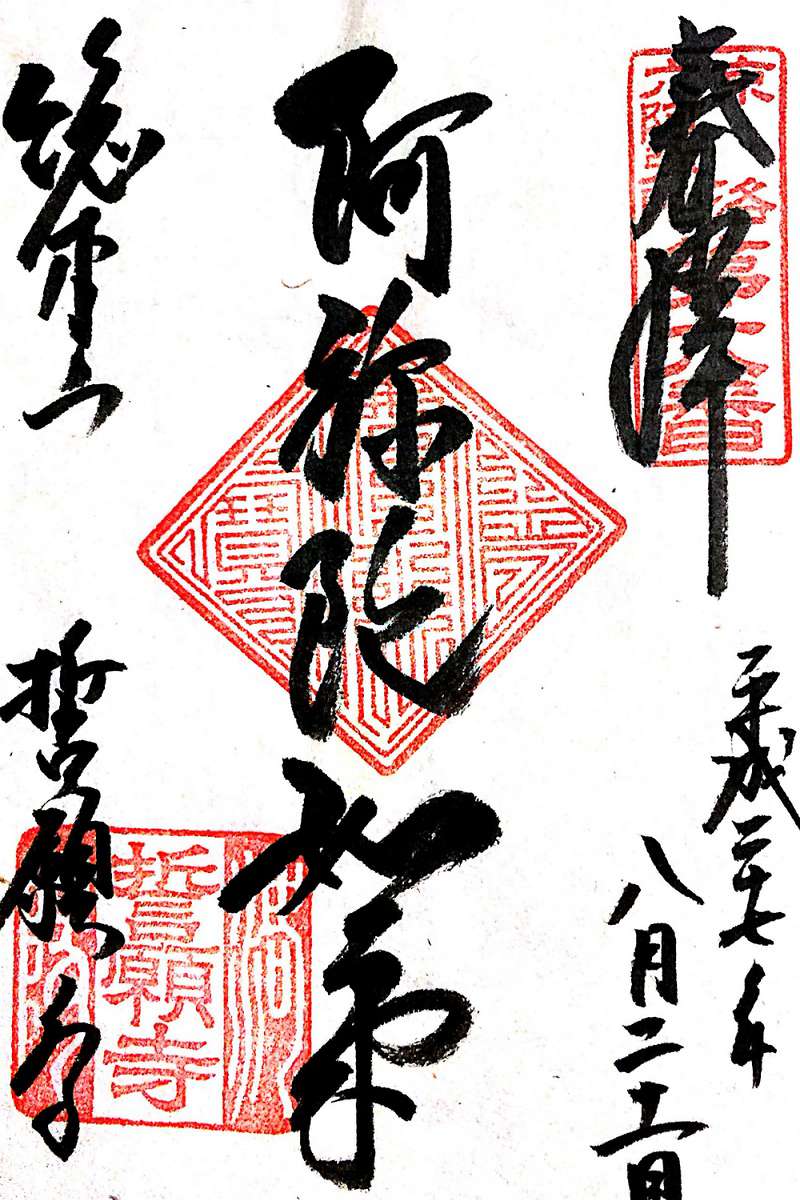 奉拝
平成二十七年
八月二十一日
阿弥陀如来
総本山
誓願寺
誓願寺